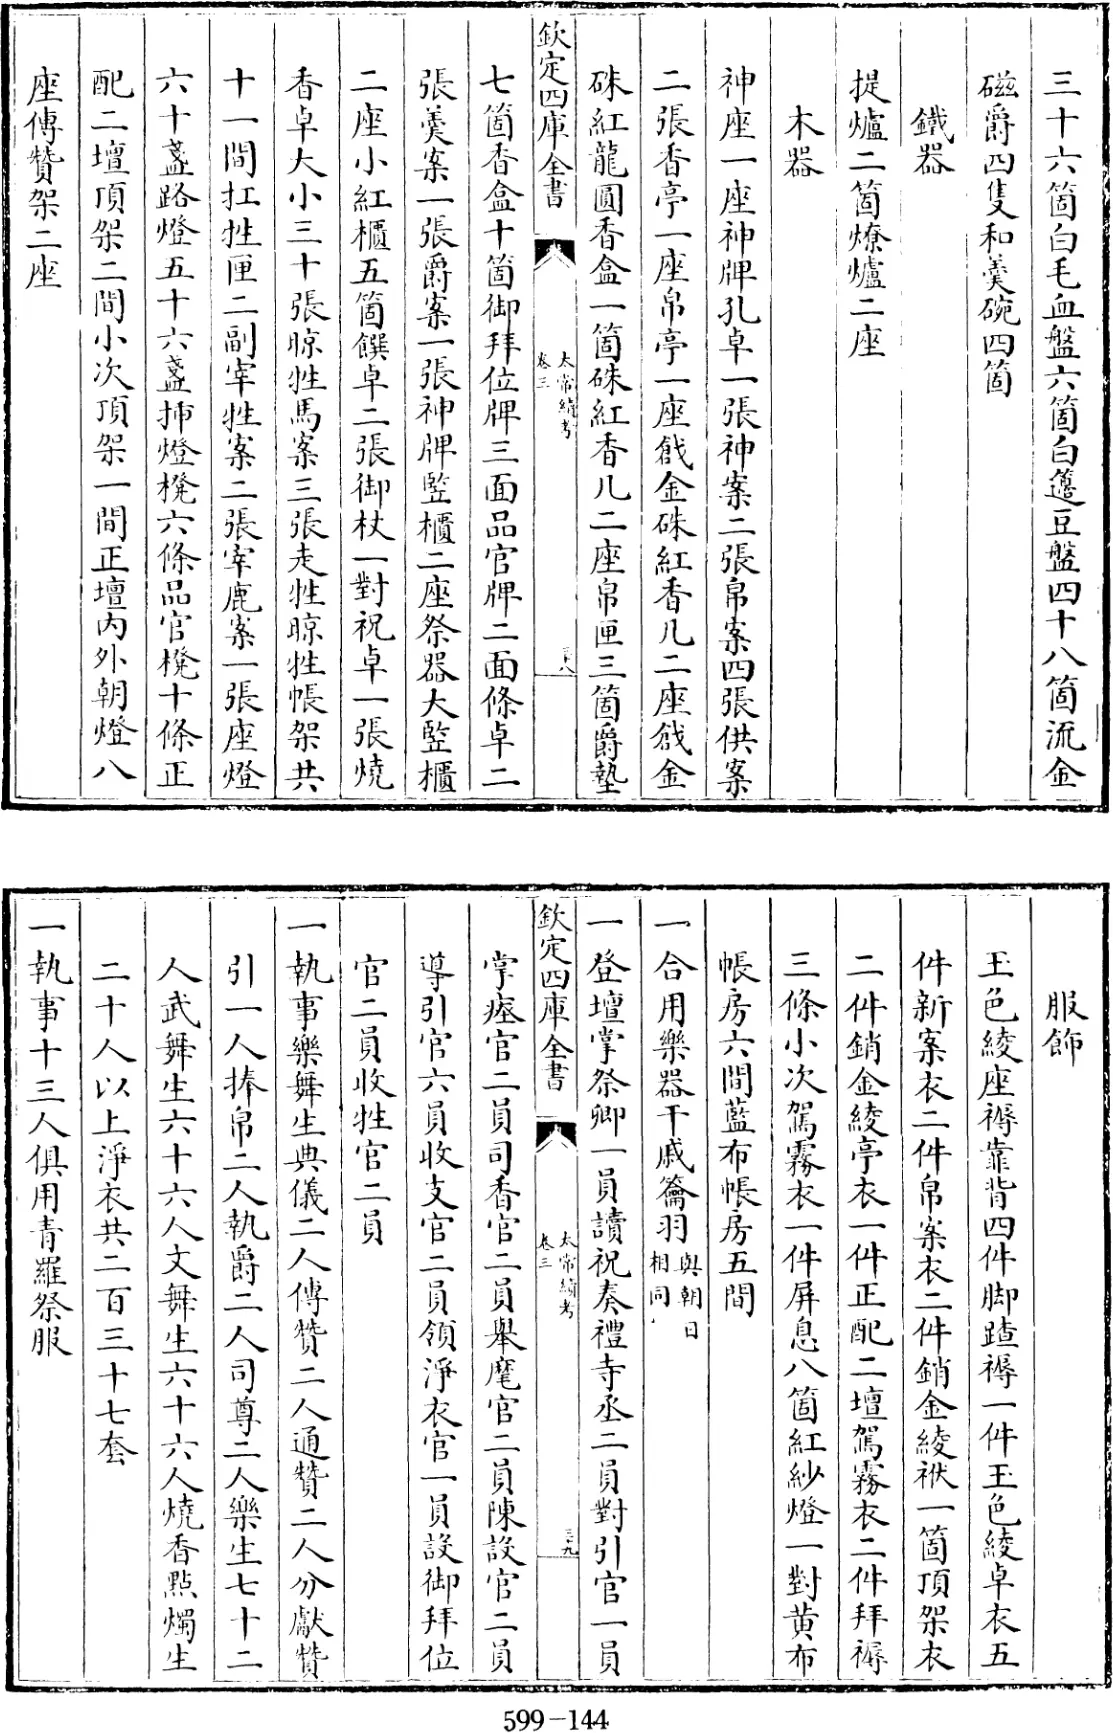 三十六箇白毛血盤六箇白籩豆盤四十八箇流金
磁爵四隻和羹碗四箇
鐵器
提爐二箇燎爐二座
木器
神座一座神牌孔卓一張神案二張帛案四張供案
二張香亭一座帛亭一座戧金硃紅香几二座戧金
硃紅龍圓香盒一箇硃紅香几二座帛匣三箇爵墊
欽定四庫全書
太常續考
卷三
三八
七箇香盒十箇御拜位牌三面品官牌二面條卓二
張羹案一張爵案一張神牌竪櫃二座祭器大竪櫃
二座小紅櫃五箇饌卓二張御杖一對祝卓一張燒
香卓大小三十張晾牲馬案三張走牲晾牲帳架共
十一間扛牲匣二副宰牲案二張宰鹿案一張座燈
六十盞路燈五十六盞揷燈櫈六條品官櫈十條正
配二壇頂架二間小次頂架一間正壇内外朝燈八
座傳贊架二座
服飾
玉色綾座褥靠背四件脚踏褥一件玉色綾卓衣五
件新案衣二件帛案衣二件銷金綾袱一箇頂架衣
二件銷金綾亭衣一件正配二壇駕霧衣二件拜褥
三條小次駕霧衣一件屏息八箇紅紗燈一對黄布
帳房六間藍布帳房五間
一合用樂器干戚籥羽與朝日相同
一登壇掌祭卿一員讀祝奏禮寺丞二員對引官一員
欽定四庫全書
太常續考
卷三
三九
掌瘞官二員司香官二員舉麾官二員陳設官二員
導引官六員收支官二員領淨衣官一員設御拜位
官二員收牲官二員
一執事樂舞生典儀二人傳贊二人通贊二人分獻贊
引一人捧帛二人執爵二人司尊二人樂生七十二
人武舞生六十六人文舞生六十六人燒香點燭生
二十人以上淨衣共二百三十七套
一執事十三人俱用青羅祭服
599-144